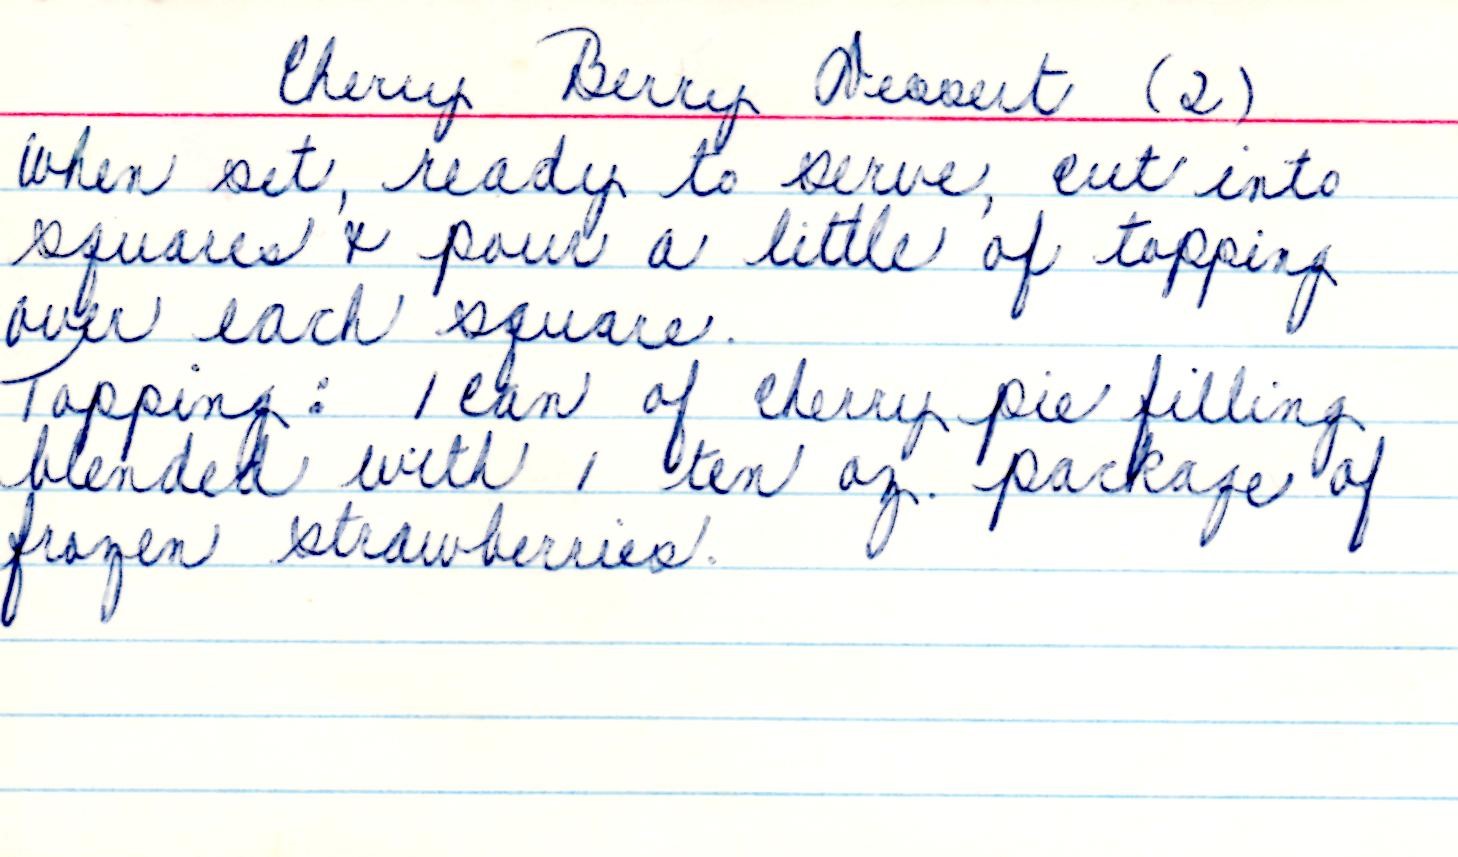 Cherry Berry Dessert (2)
When set, ready to serve, cut into
squares & pour a little of topping
over each square.
Topping: 1 can of cherry pie filling
blended with 1 ten oz. package of
frozen strawberries.